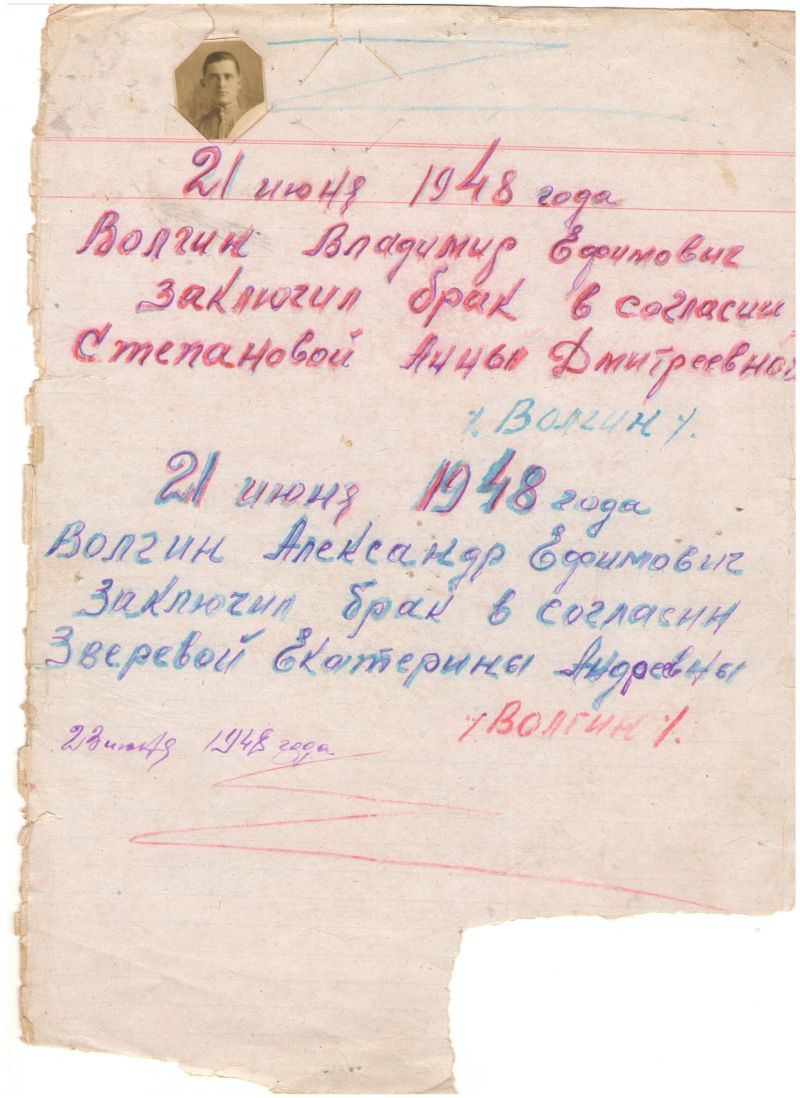 21 июня 1948 года
Волгин Владимир Ефимович
Заключил брак в согласии
Степановой Анны Дмитреевной
/. Волгин /.
21 июня 1948 года
Волгин Александр Ефимович
Заключил брак в согласии
Зверевой Екатерины Андреевны
/. Волгин /.
23 июня 1948 года